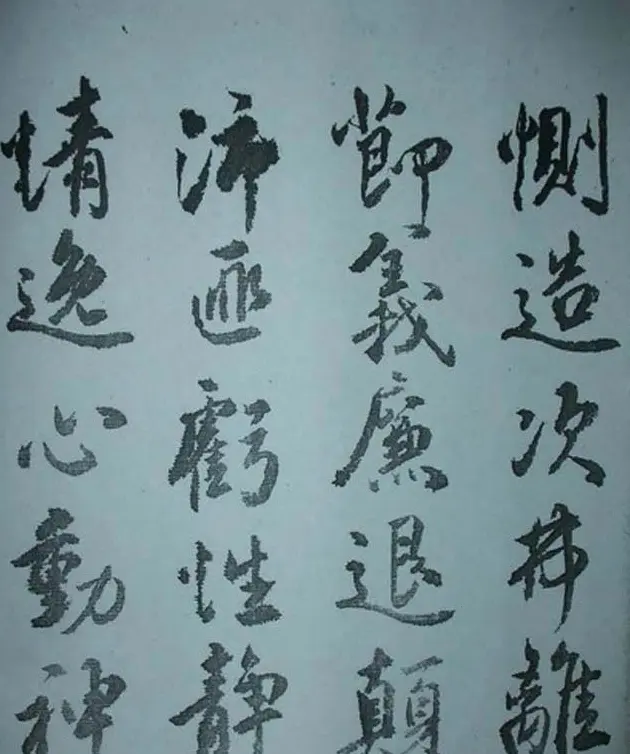 惻造次弗離
節義廉退顛
沛匪虧性靜
情逸心動神